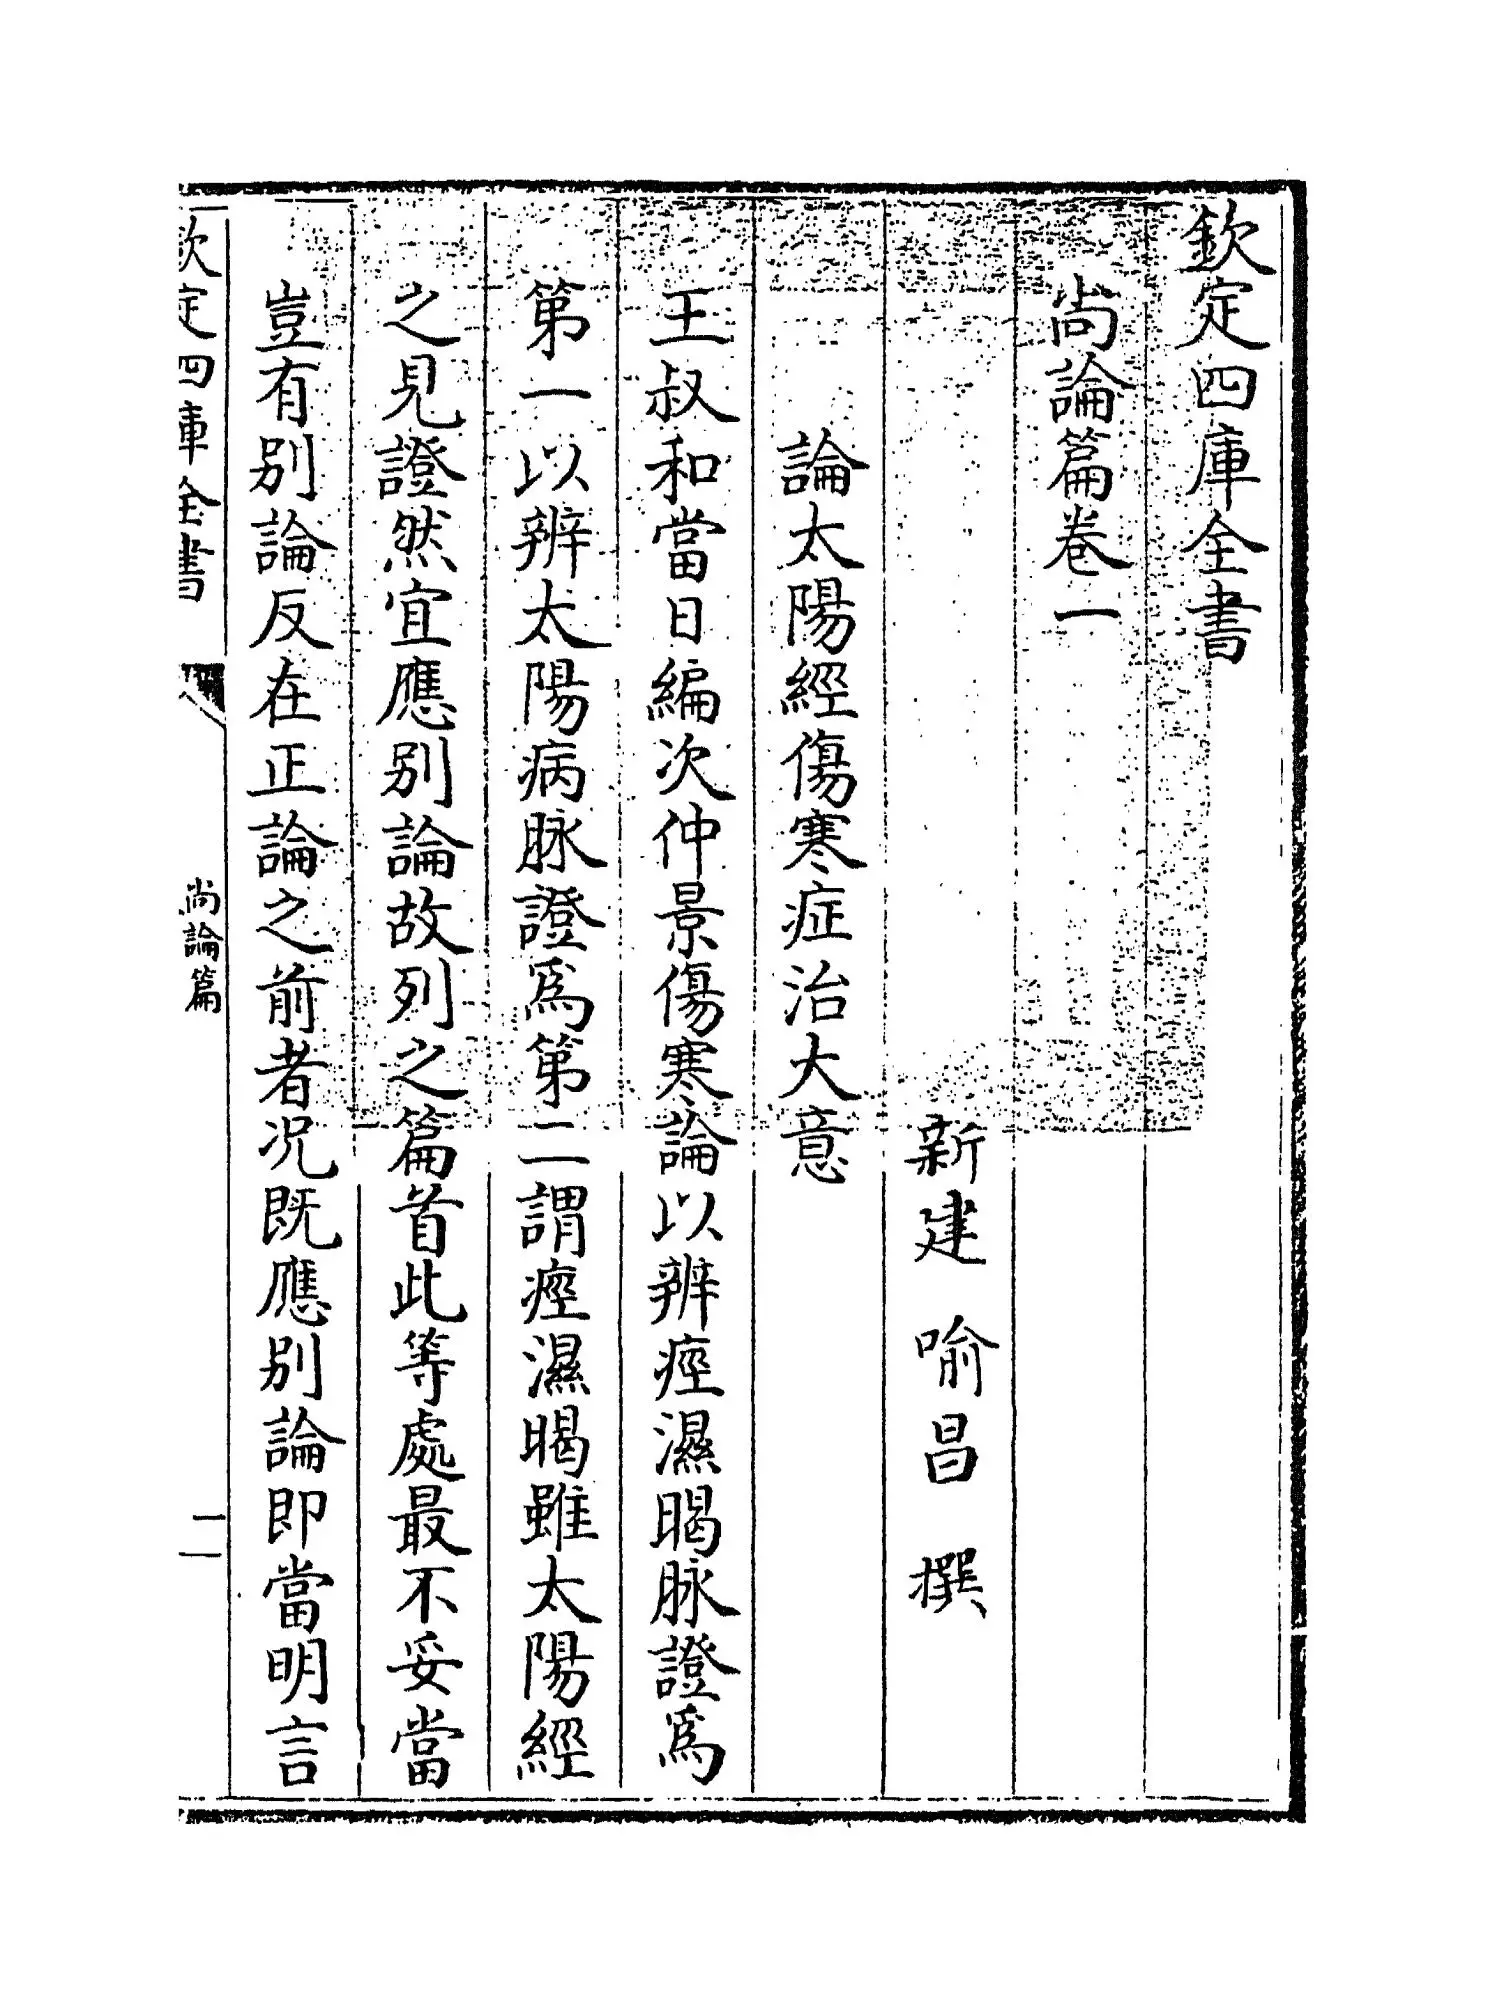 欽定四庫全書
尚論篇卷一
新建喻昌撰
論太陽經傷寒症治大意
王叔和當日編次仲景傷寒論以辨痙濕暍脉證爲
第一以辨太陽病脉證爲第二謂痙濕暍雖太陽經
之見證然宜應別論故列之篇首此等處最不妥當
豈有別論反在正論之前者况既應別論即當明言
欽定四庫全書
尚論篇